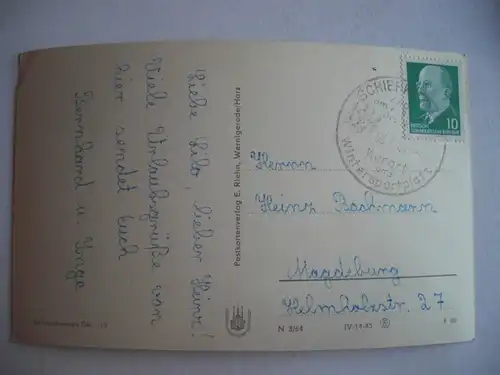 Liebe Lilo, lieber Heinz!
Viele Urlaubsgrüße von
hier sendet Euch
Bernhard u. Inge
Postkartenverlag E. Riehn, Wernigerode/Harz
SCHIER
Kurort
und
Wintersportplatz
10
DEUTSCHE DEMOKRATISCHE REPUBLIK
Herrn
Heinz Bachmann
Magdeburg
Helmholzstr. 27
N 3/64
IV-14-45